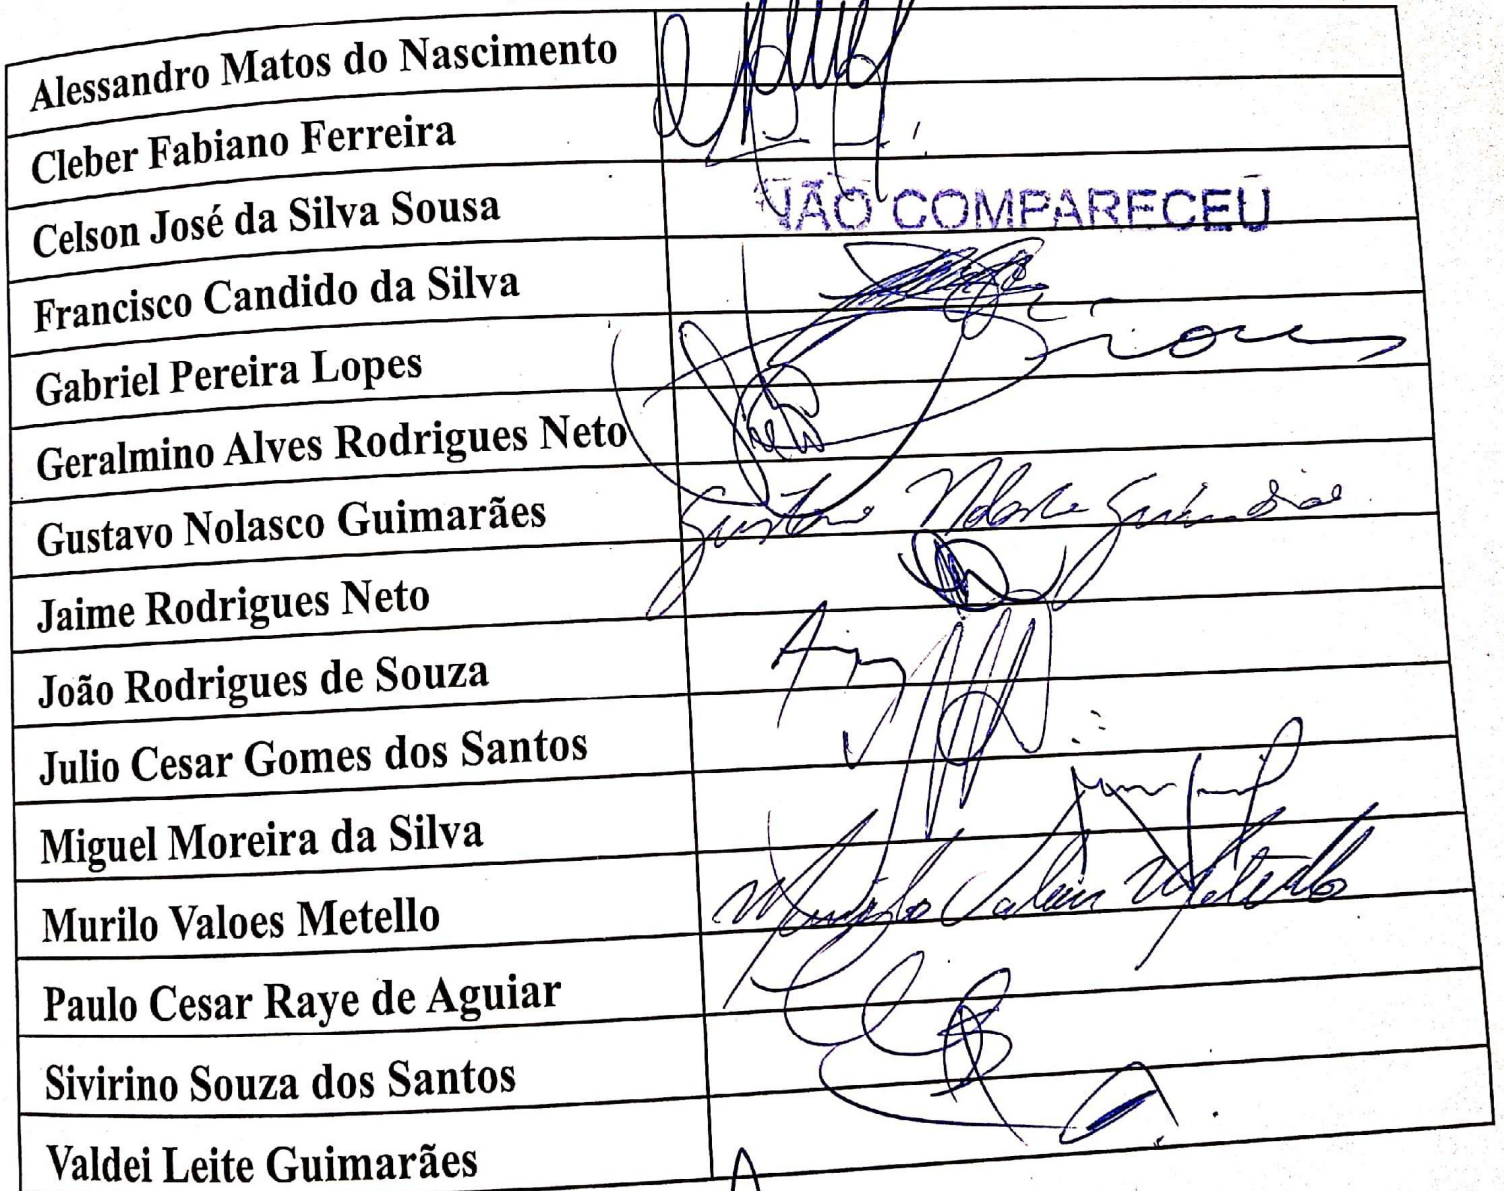 Alessandro Matos do Nascimento
Cleber Fabiano Ferreira
Celson José da Silva Sousa
NÃO COMPARECEU
Francisco Candido da Silva
Gabriel Pereira Lopes
Geralmino Alves Rodrigues Neto
Gustavo Nolasco Guimarães
Gustavo Nolasco Guimarães
Jaime Rodrigues Neto
João Rodrigues de Souza
Julio Cesar Gomes dos Santos
Miguel Moreira da Silva
Murilo Valoes Metello
Murilo Valoes Metello
Paulo Cesar Raye de Aguiar
Sivirino Souza dos Santos
Valdei Leite Guimarães